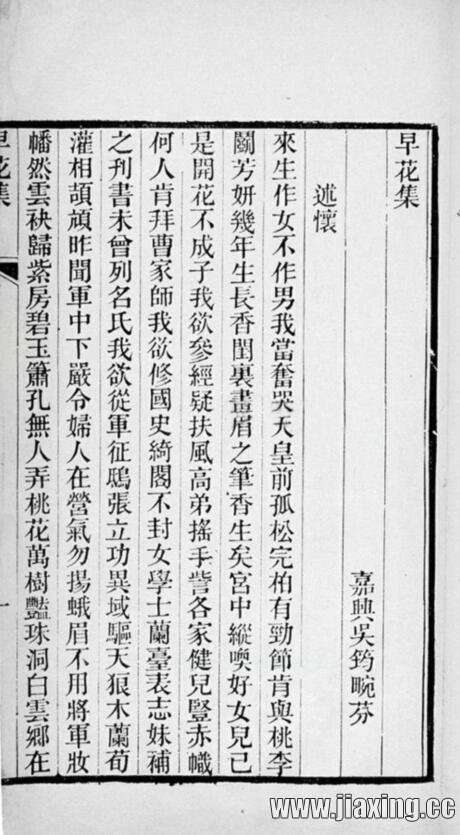 早花集
嘉興吳筠畹芬
述懷
來生作女不作男我當奮哭天皇前孤松完柏有勁節肯與桃李
鬭芳妍幾年生長香閨裏畫眉之筆香生矣宮中縱喚好女兒已
是開花不成子我欲參經疑扶風高弟搖手訾各家健兒豎赤幟
何人肯拜曹家師我欲修國史綺閣不封女學士蘭臺表志妹補
之刊書未曾列名氏我欲從軍征鴟張立功異域驅天狼木蘭荀
灌相頡頏昨聞軍中下嚴令婦人在營氣勿揚蛾眉不用將軍妝
幡然雲袂歸紫房碧玉簫孔無人弄桃花萬樹豔珠洞白雲鄉在
早花集
www.jiaxing.cc